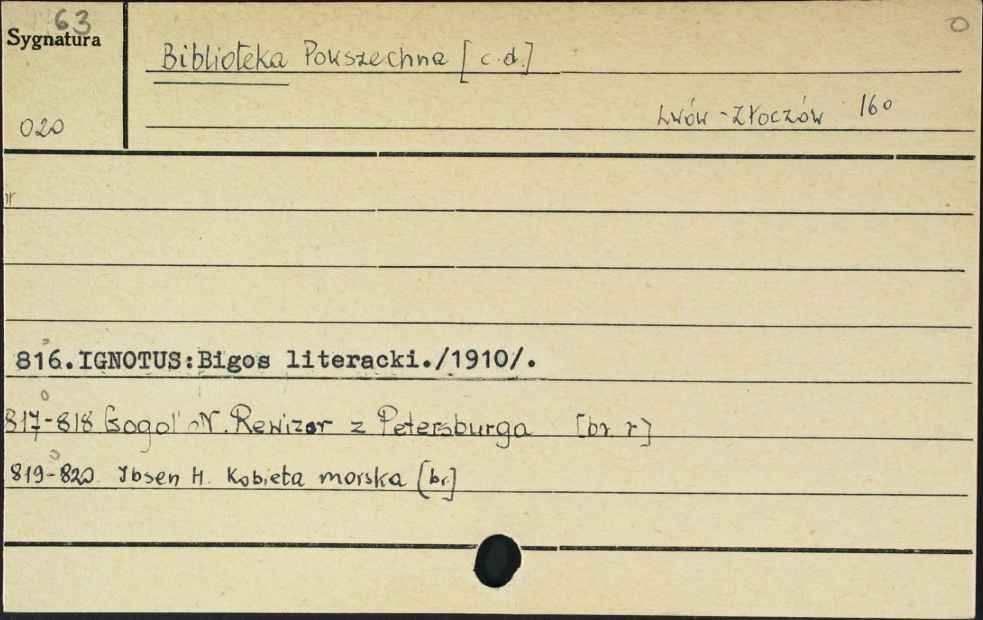 63
Sygnatura
Biblioteka Powszechna [c.d.]
020
Lwów - Złoczów 16°
nr
816. IGNOTUS: Bigos literacki. /1910/.
817-818 Gogol' N. Rewizor z Petersburga [br. r]
819-820. Ibsen H. Kobieta morska [br.]